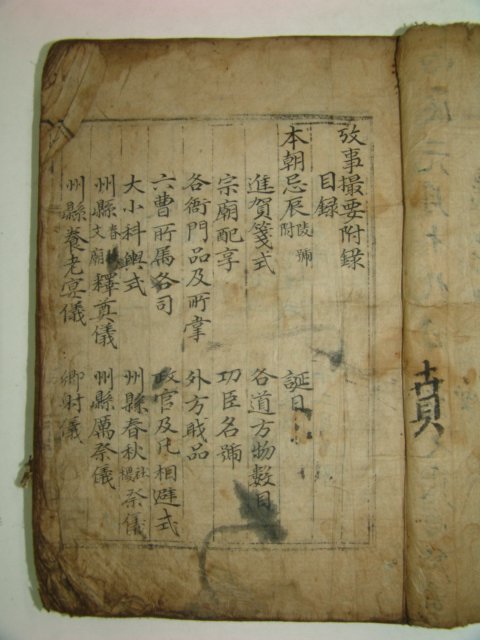 攷事撮要附錄
目錄
本朝忌辰附陵號 誕日
進賀箋式 各道方物數目
宗廟配享 功臣名號
各衙門品及所掌 外方職品
六曹所属各司 政官及凡相避式
大小科輿式 州縣春秋社稷祭儀
州縣春秋文廟釋奠儀 州縣厲祭儀
州縣養老宴儀 鄉射儀